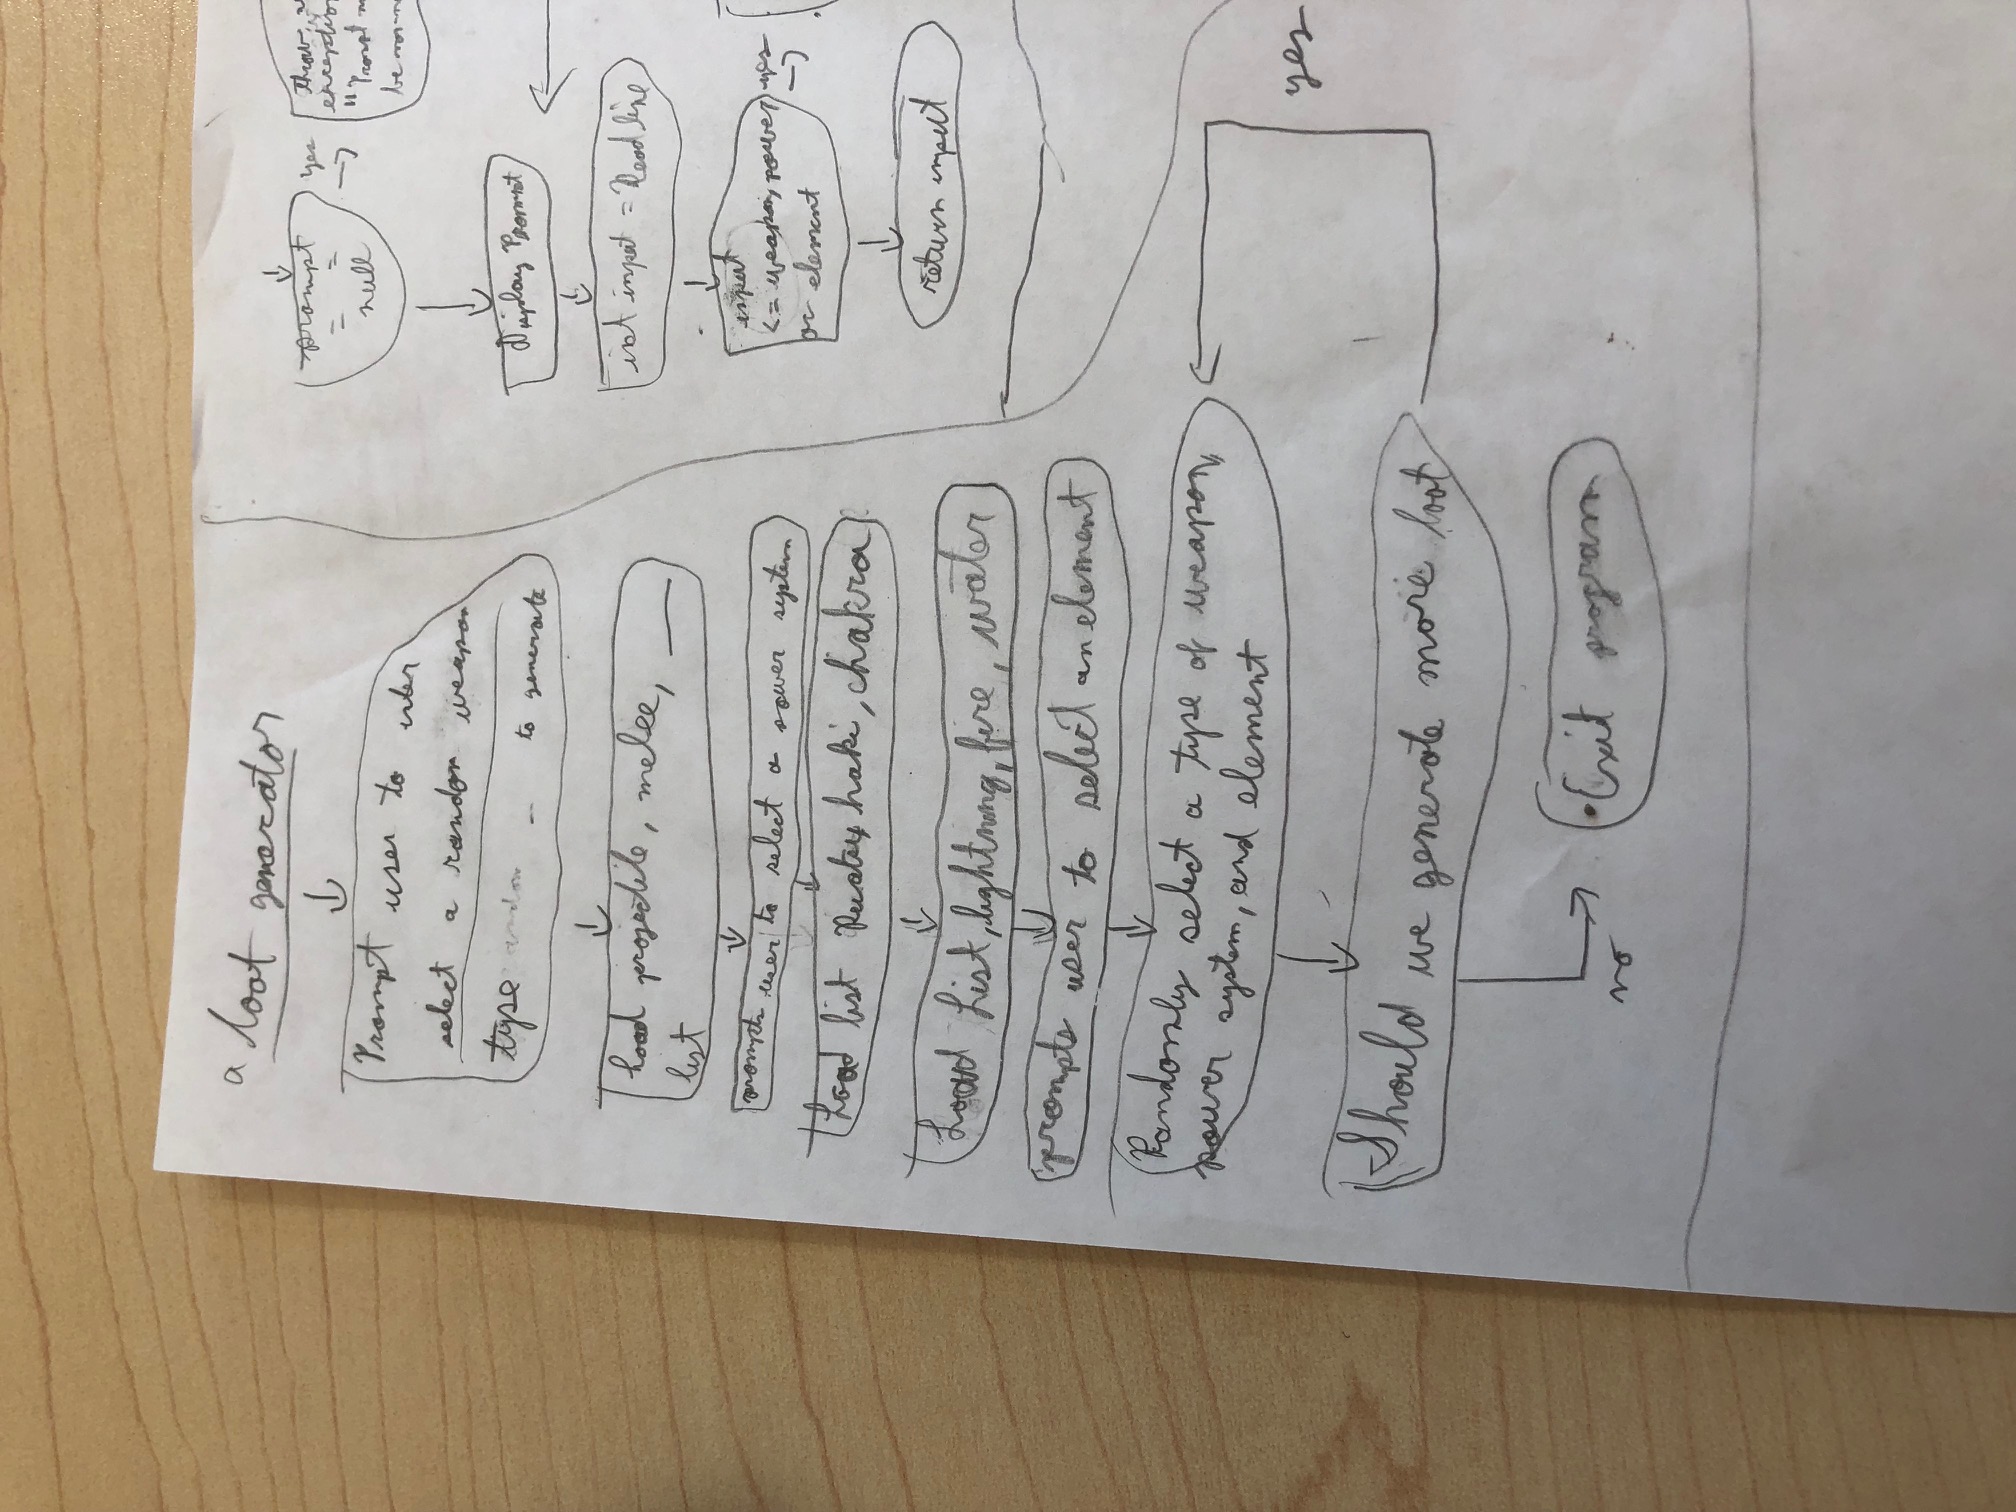 a loot generator
Prompt user to
select a random weapon
type to generate
Load projectile, melee,
list
prompts user to select a power system
Load list haki, chakra
Load List, lightning, fire, water
prompts user to select an element
Randomly select a type of weapon,
power system, and element
Should we generate more loot
yes
no
Exit program
prompt
= =
null
yes
throw
exception
"Prompt
be
Display Prompt
int input = Read line
input
<= weapon, power
or element
yes
return input